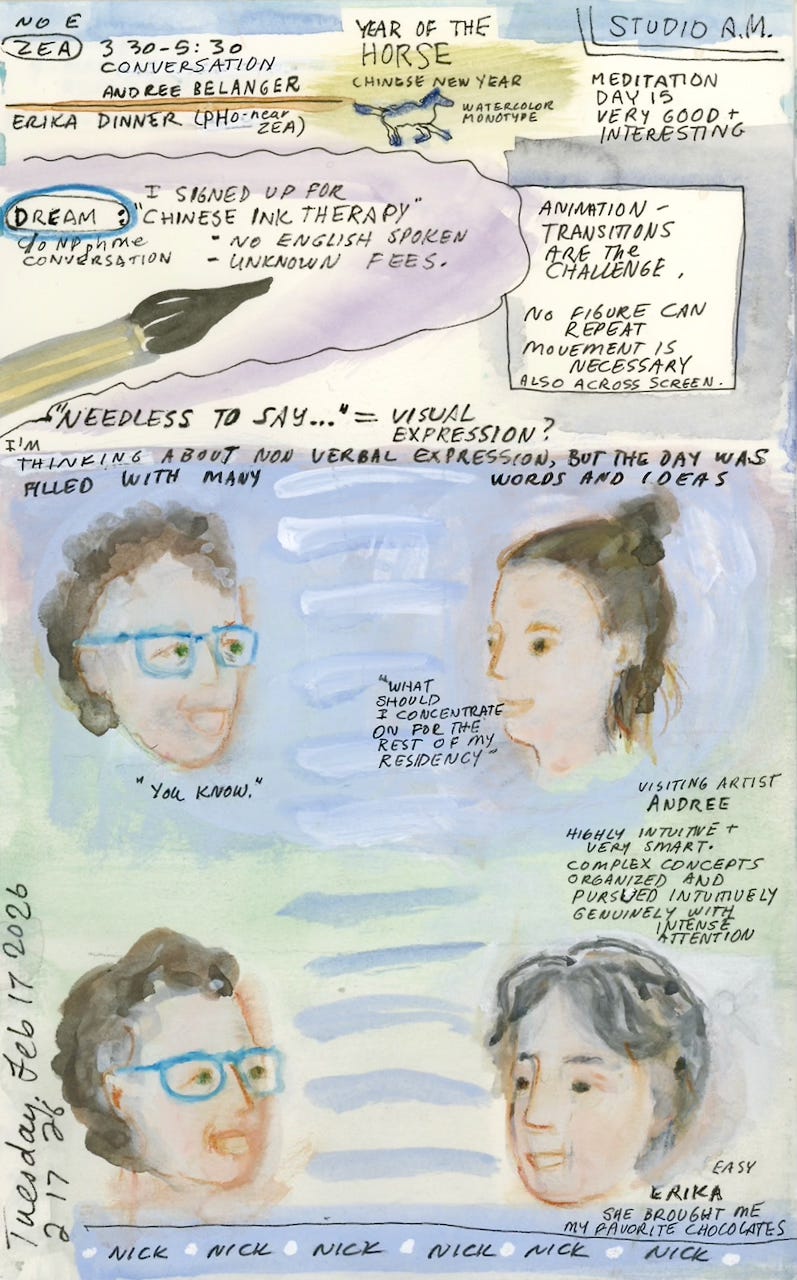 NO E
ZEA 3 30-5:30
CONVERSATION
ANDREE BELANGER
ERIKA DINNER (PHO-near
ZEA)
YEAR OF THE
HORSE
CHINESE NEW YEAR
WATERCOLOR
MONOTYPE
STUDIO A.M.
MEDITATION
DAY 15
VERY GOOD +
INTERESTING
DREAM :
I SIGNED UP FOR
"CHINESE INK THERAPY"
- NO ENGLISH SPOKEN
- UNKNOWN FEES.
c/o NP phone
CONVERSATION
ANIMATION -
TRANSITIONS
ARE The
CHALLENGE.
NO FIGURE CAN
REPEAT
MOVEMENT IS
NECESSARY
ALSO ACROSS SCREEN.
"NEEDLESS TO SAY..." = VISUAL
EXPRESSION?
I'M
THINKING ABOUT NON VERBAL EXPRESSION, BUT THE DAY WAS
FILLED WITH MANY WORDS AND IDEAS
"WHAT
SHOULD
I CONCENTRATE
ON FOR THE
REST OF MY
RESIDENCY"
"YOU KNOW."
VISITING ARTIST
ANDREE
HIGHLY INTUITIVE +
VERY SMART.
COMPLEX CONCEPTS
ORGANIZED AND
PURSUED INTUITIVELY
GENUINELY WITH
INTENSE
ATTENTION
Tuesday, Feb 17 2026
2 17 26
EASY
ERIKA
SHE BROUGHT ME
MY FAVORITE CHOCOLATES
NICK NICK NICK NICK NICK NICK